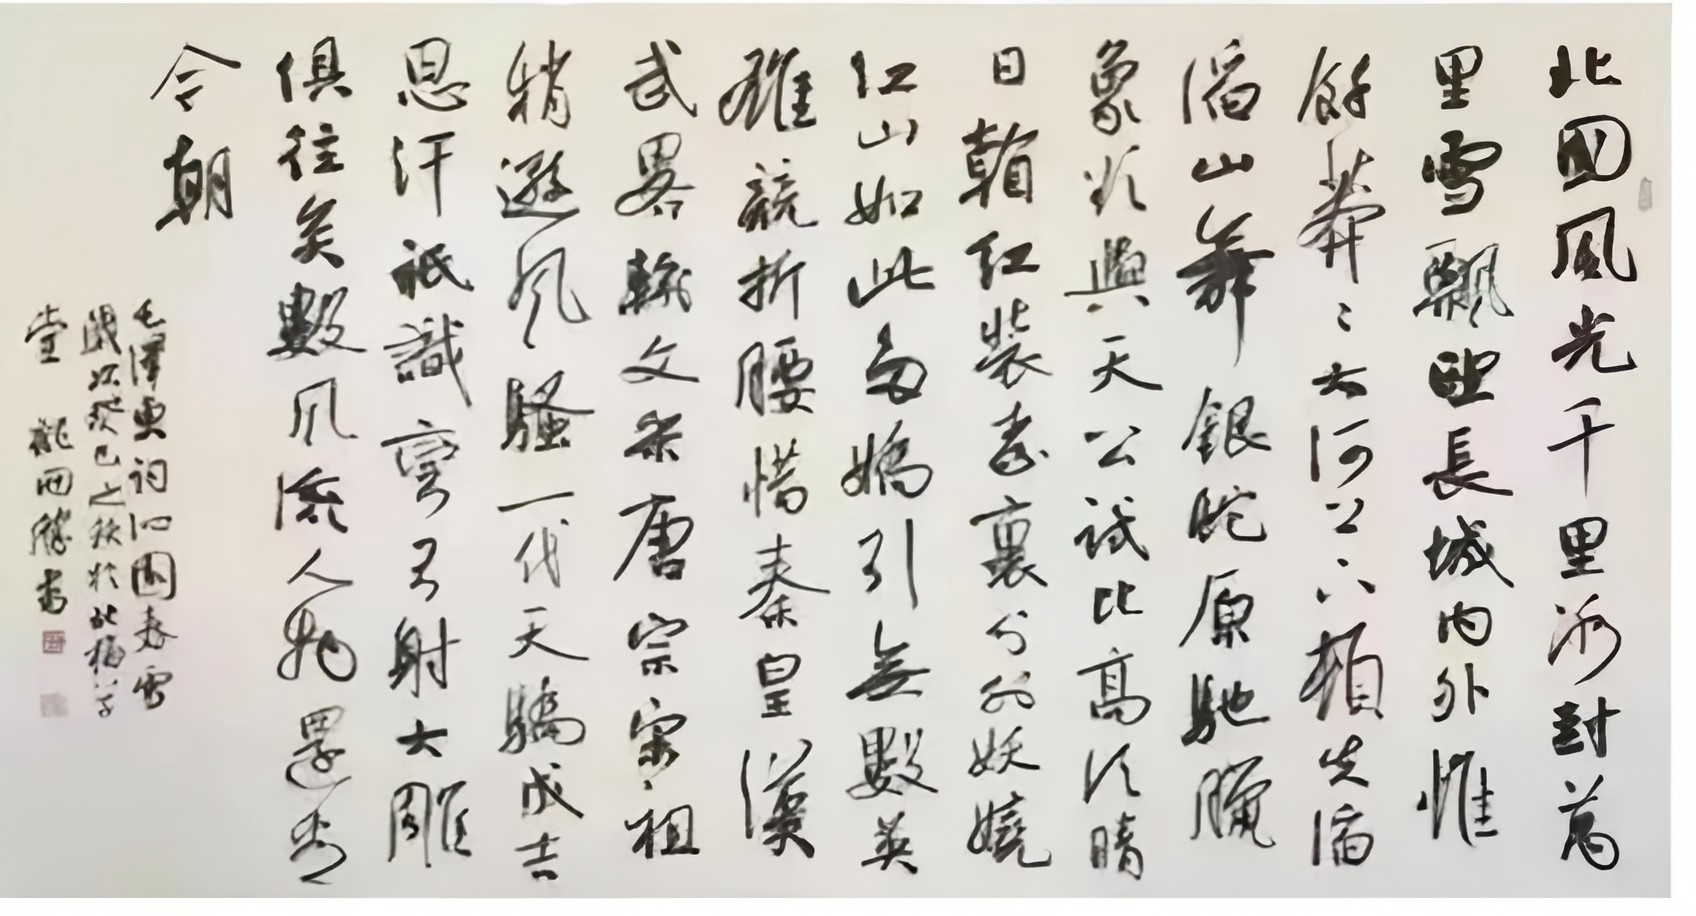 北國風光千里冰封萬
里雪飄望長城內外惟
餘莽〻大河上下頓失滔
滔山舞銀蛇原馳臘
象欲與天公試比高須晴
日看紅裝素裹分外妖嬈
江山如此多嬌引無數英
雄競折腰惜秦皇漢
武略輸文采唐宗宋祖
稍遜風騷一代天驕成吉
思汗祇識彎弓射大雕
俱往矣數風流人物還看
今朝
毛澤東詞沁園春雪
歲次癸巳之秋於北梅草
堂 書